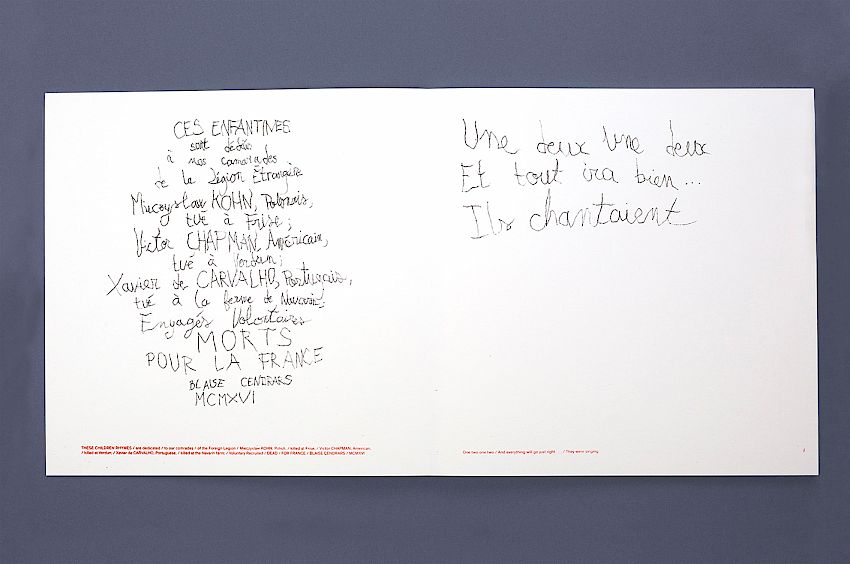 CES ENFANTINES
sont dédiées
à nos camarades
de la Légion Étrangère
Mieczyslaw KOHN, Polonais,
tué à Frise ;
Victor CHAPMAN, Américain,
tué à Verdun ;
Xavier de CARVALHO, Portugais,
tué à la ferme de Navarin ;
Engagés Volontaires
MORTS
POUR LA FRANCE
BLAISE CENDRARS
MCMXVI
THESE CHILDREN RHYMES / are dedicated / to our comrades / of the Foreign Legion / Mieczyslaw KOHN, Polish, / killed at Frise, / Victor CHAPMAN, American,
/ killed at Verdun, / Xavier de CARVALHO, Portuguese, / killed at the Navarin farm; / Voluntary Recruited / DEAD / FOR FRANCE / BLAISE CENDRARS / MCMXVI
Une deux Une deux
Et tout ira bien...
Ils chantaient
One two one two / And everything will go just right / They were singing